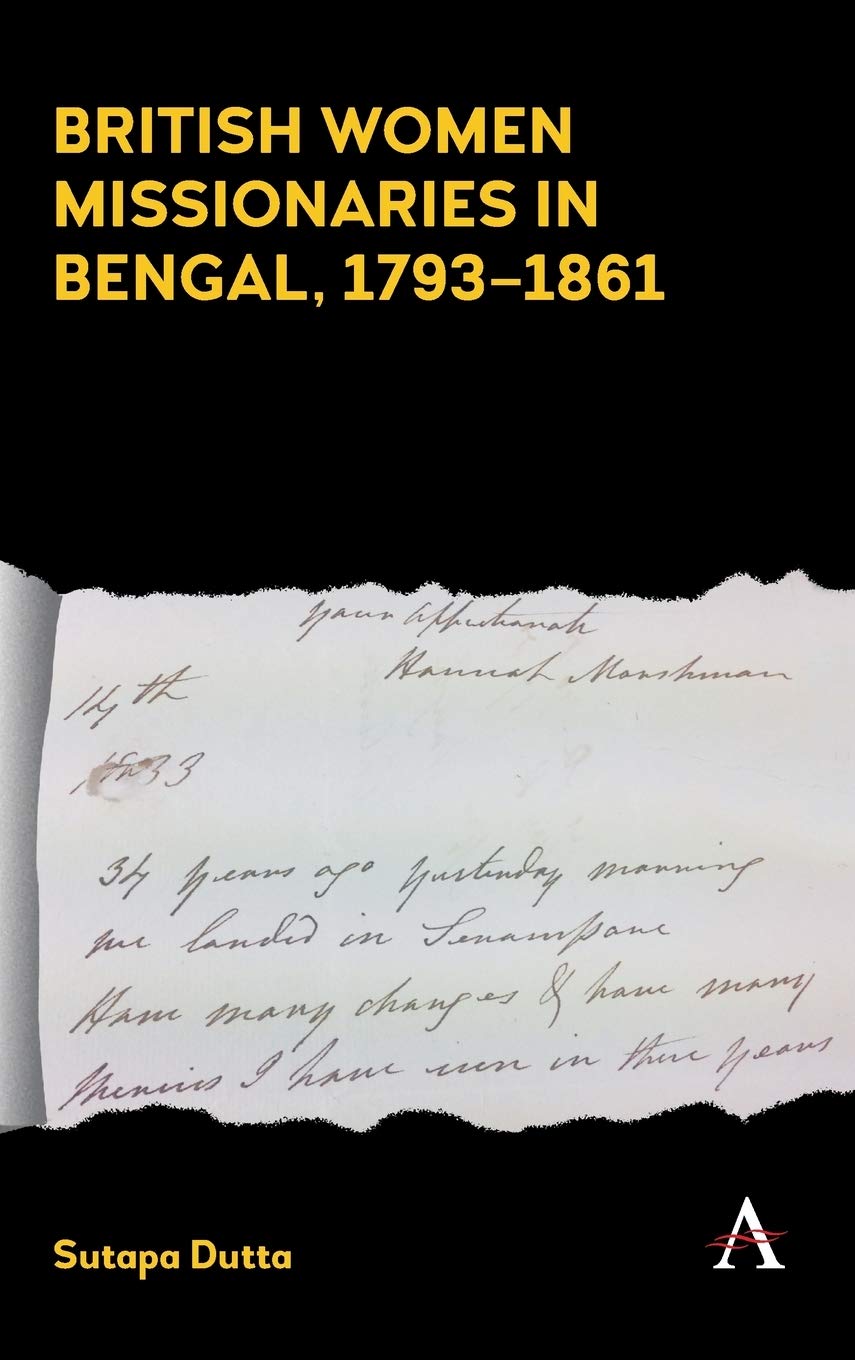 BRITISH WOMEN
MISSIONARIES IN
BENGAL, 1793–1861
your affectionate
Hannah Marshman
14th
1833
34 years ago yesterday morning
we landed in Serampore
How many changes & how many
mercies I have seen in these years
Sutapa Dutta
A